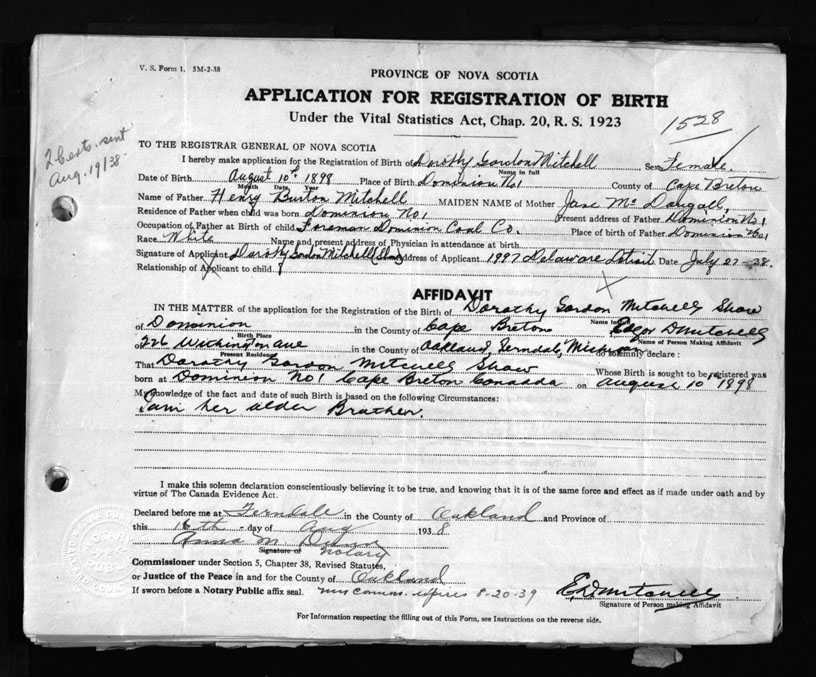 V. S. Form 1. 5M-2-38
PROVINCE OF NOVA SCOTIA
APPLICATION FOR REGISTRATION OF BIRTH
Under the Vital Statistics Act, Chap. 20, R. S. 1923
1528
2 Certs. sent
Aug. 19/38.
TO THE REGISTRAR GENERAL OF NOVA SCOTIA
I hereby make application for the Registration of Birth of Dorothy Gordon Mitchell Sex Female.
Name in full
Date of Birth August 10th 1898 Place of Birth Dominion No1 County of Cape Breton
Month Date Year
Name of Father Henry Burton Mitchell MAIDEN NAME of Mother Jane McDougall,
Residence of Father when child was born Dominion No.1 Present address of Father Dominion No.1
Occupation of Father at Birth of child Foreman Dominion Coal Co. Place of birth of Father Dominion No1
Race White Name and present address of Physician in attendance at birth
Signature of Applicant Dorothy Gordon Mitchell (Shaw) Address of Applicant 1997 Delaware Detroit Date July 27-38.
Relationship of Applicant to child
AFFIDAVIT
IN THE MATTER of the application for the Registration of Birth of Dorothy Gordon Mitchell Shaw
Name in full
of Dominion in the County of Cape Breton Edgar D Mitchell
Birth Place Name of Person Making Affidavit
of 226 Withington ave in the County of Oakland, Ferndale, Michigan do solemnly declare:
Present Residence
That Dorothy Gordon Mitchell Shaw Whose Birth is sought to be registered was
born at Dominion No 1 Cape Breton Canada on August 10th 1898
My knowledge of the fact and date of such Birth is based on the following Circumstances:
I am her older Brother.
I make this solemn declaration conscientiously believing it to be true, and knowing that it is of the same force and effect as if made under oath and by
virtue of The Canada Evidence Act.
Declared before me at Ferndale in the County of Oakland and Province of
this 16th day of Aug 1938
Anna M.
Signature of Notary
Commissioner under Section 5, Chapter 38, Revised Statutes,
or Justice of the Peace in and for the County of Oakland
If sworn before a Notary Public affix seal. my comm. expires 8-20-39
E D Mitchell
Signature of Person making Affidavit
For Information respecting the filling out of this Form, see Instructions on the reverse side.